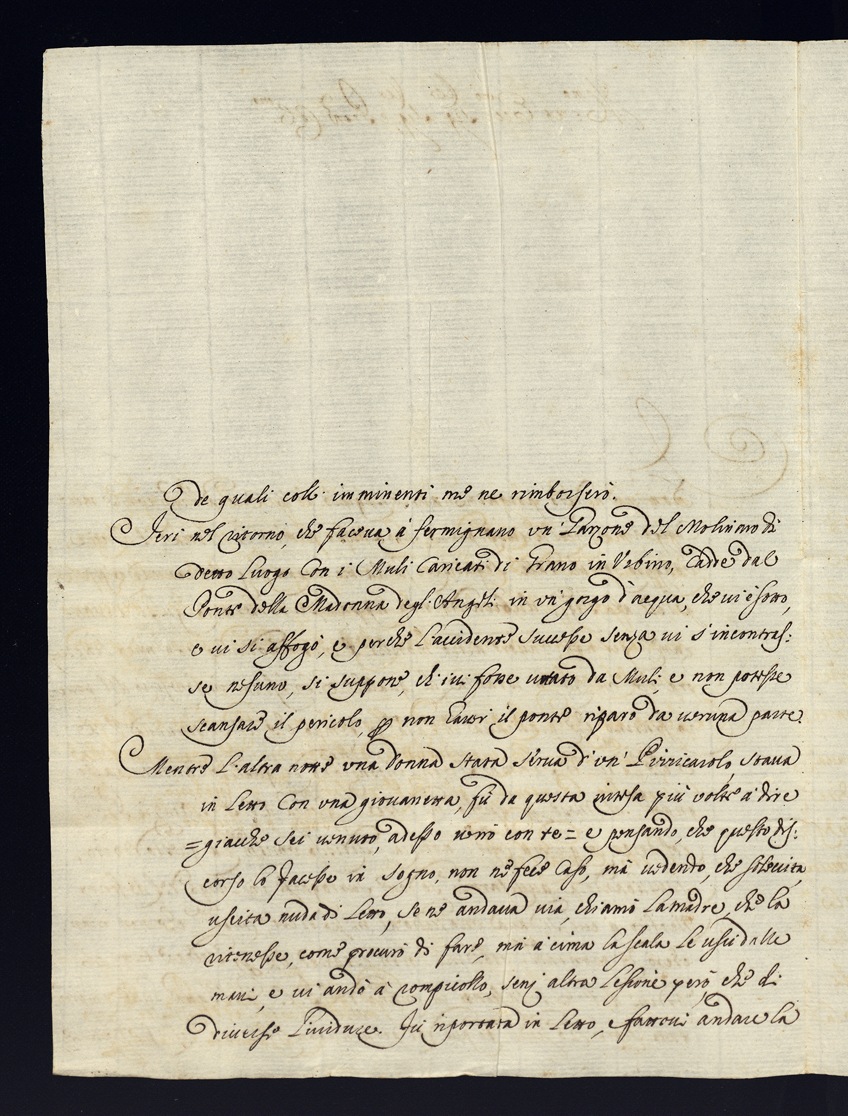 de quali coll' imminenti me ne rimborserò.
Jeri nel ritorno, che faceva à fermignano un' Garzone del Molinaro di
detto Luogo Con i Muli Caricati di Grano in Urbino, Cadde dal
Ponte della Madonna degl' Angeli in un' gorgo d'acqua, che vi è sotto,
e vi si affogò, e perche l'accidente successe senza vi s'incontras:
se nesuno, si suppone, ch' ivi fosse urtato da Muli, e non potesse
scansare il pericolo, non haver il ponte riparo da veruna parte.
Mentre L'altra notte una donna stata serva d'un' Pizzicarolo, stava
in Letto Con una giovanetta, fù da questa intesa più volte à dire
=giacche sei venuto, adesso verrò con te= e pensando, che questo dis:
corso lo facesse in sogno, non ne fece Caso, mà vedendo, che
uscita nuda di Letto, se ne andava via, chiamò la madre, che la
ritenesse, come procurò di fare, mà à cima la scala le uscì dalle
mani, e vi andò à rompicollo, senz' altra Lesione però, che di
diverse Lividure. Fù riportata in Letto, e fattovi andare la